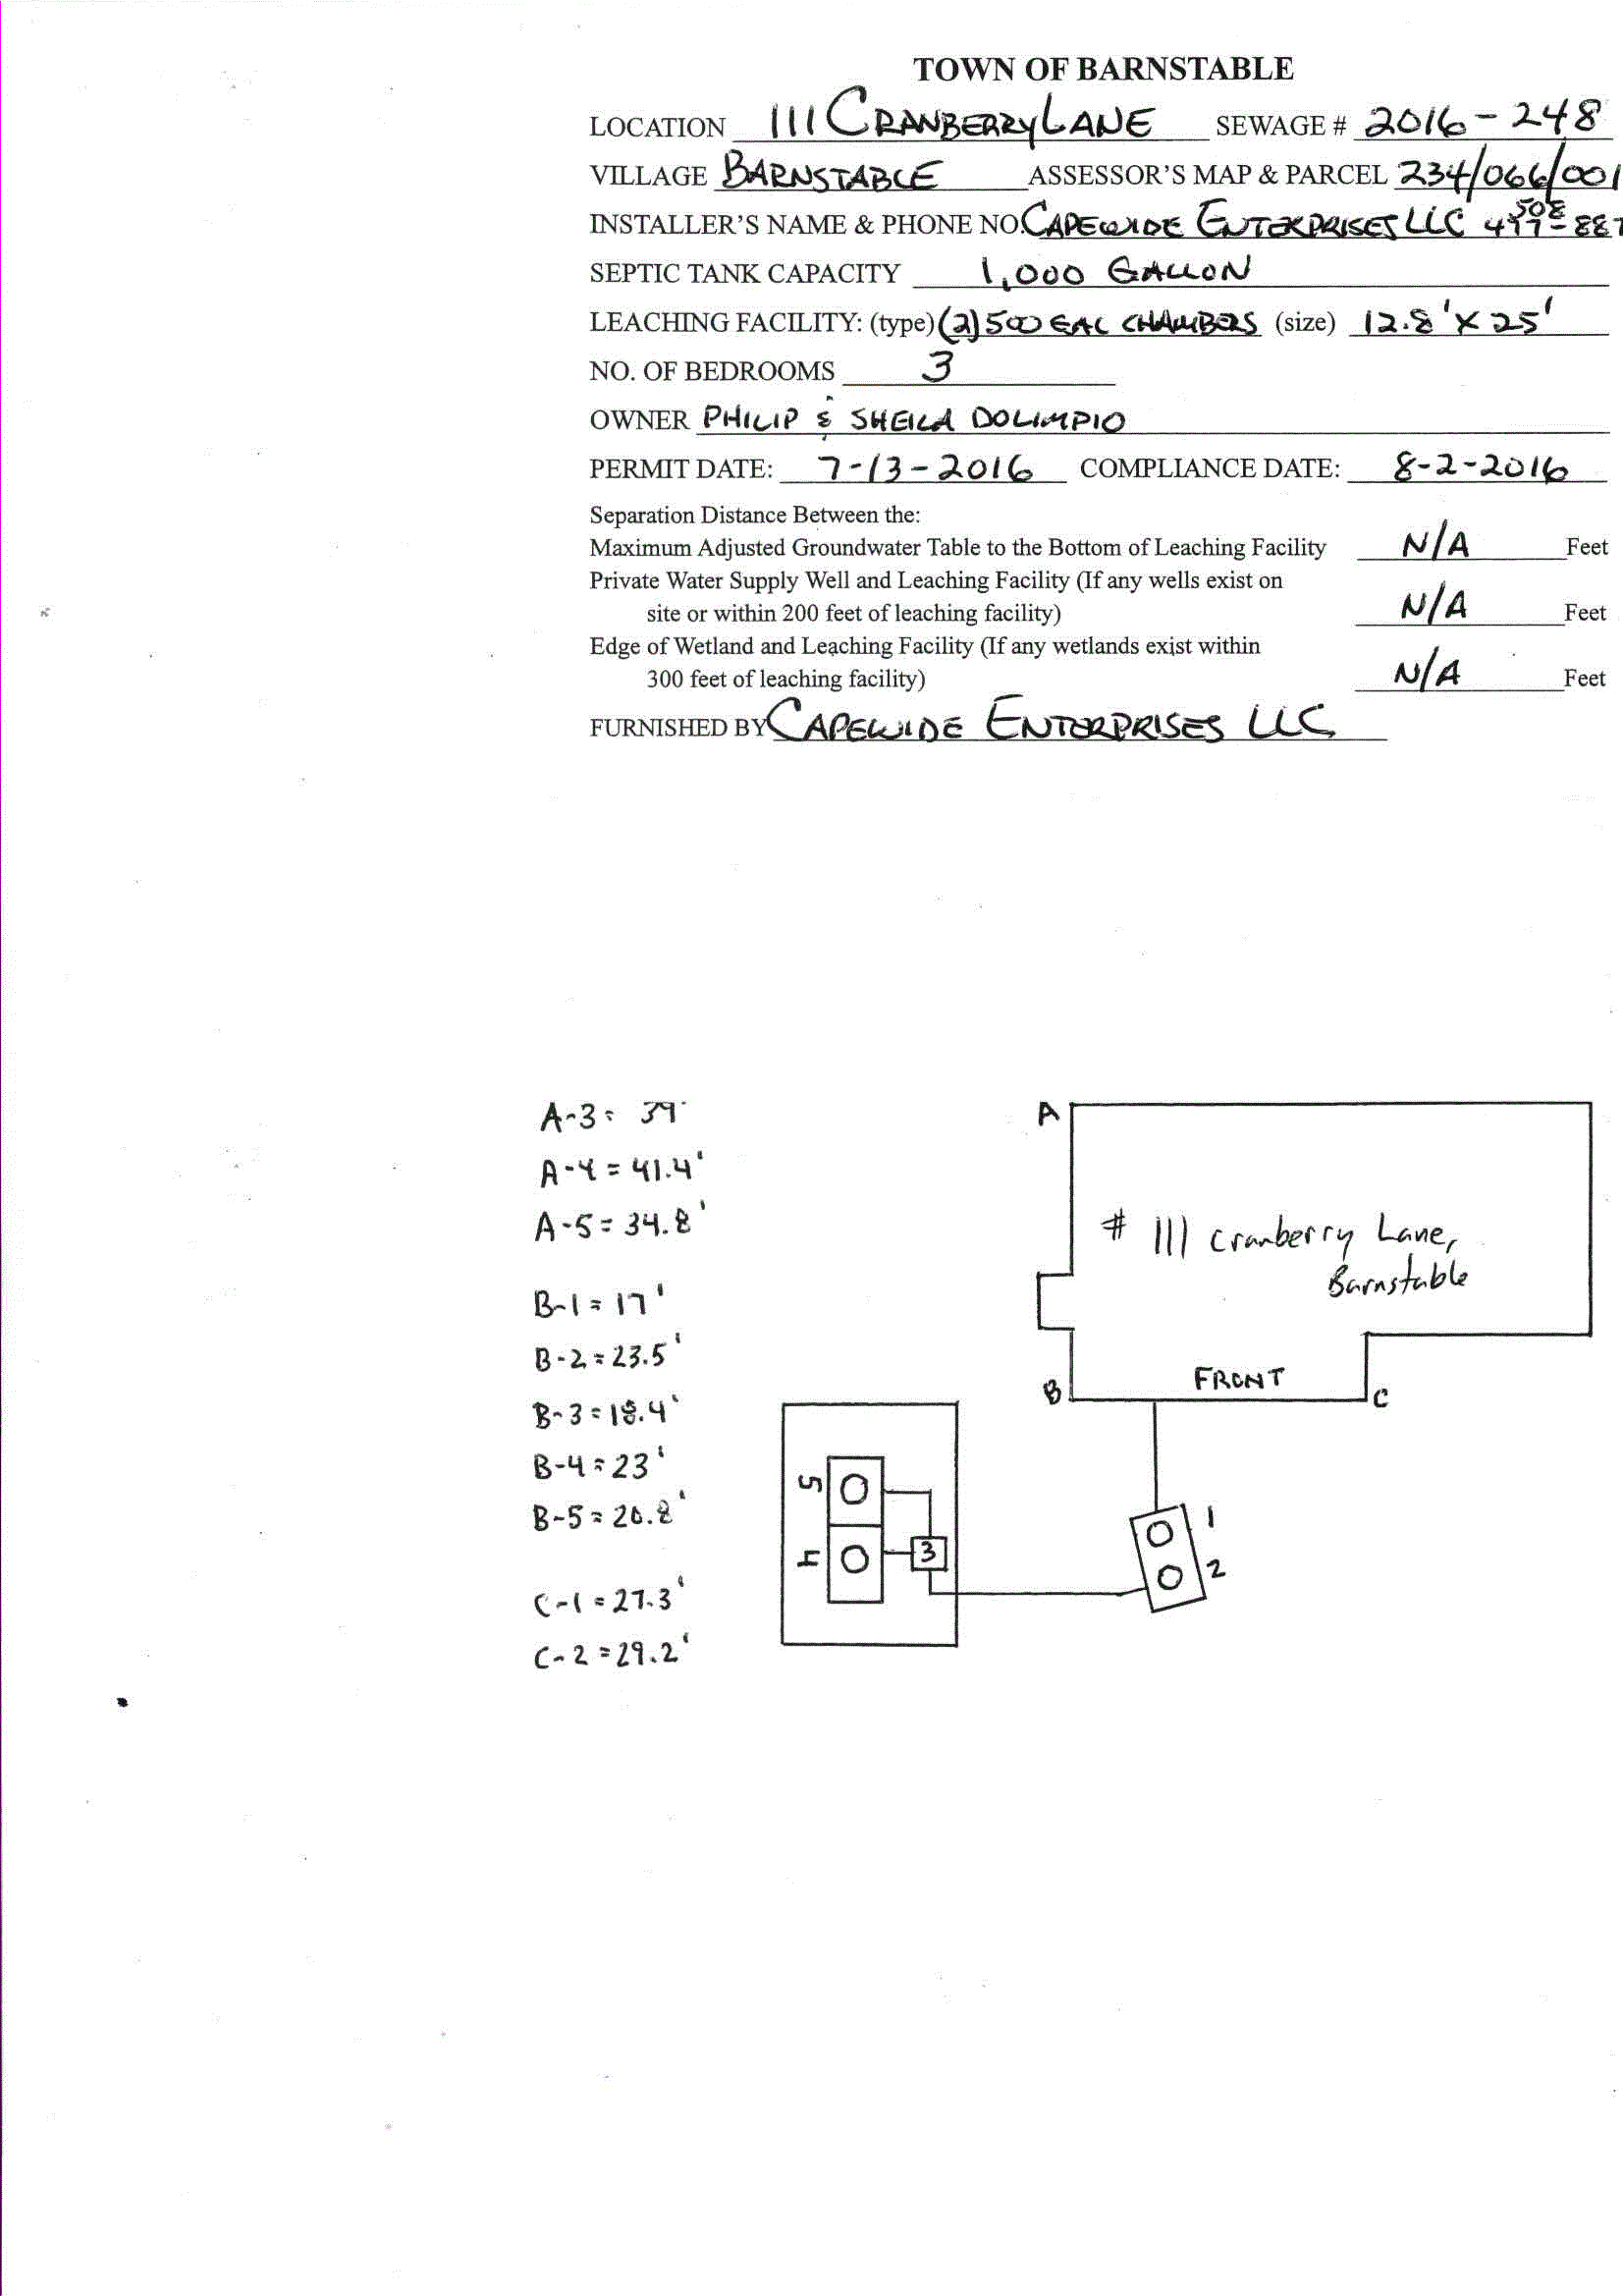 TOWN OF BARNSTABLE
LOCATION 111 CRANBERRY LANE SEWAGE # 2016-248
VILLAGE BARNSTABLE ASSESSOR'S MAP & PARCEL 234/066/001
INSTALLER'S NAME & PHONE NO. CAPEWIDE ENTERPRISES LLC 508 477-887
SEPTIC TANK CAPACITY 1,000 GALLON
LEACHING FACILITY: (type) (2) 500 GAL CHAMBERS (size) 12.8' X 25'
NO. OF BEDROOMS 3
OWNER PHILIP & SHEILA DOLIMPIO
PERMIT DATE: 7-13-2016 COMPLIANCE DATE: 8-2-2016
Separation Distance Between the:
Maximum Adjusted Groundwater Table to the Bottom of Leaching Facility N/A Feet
Private Water Supply Well and Leaching Facility (If any wells exist on
site or within 200 feet of leaching facility) N/A Feet
Edge of Wetland and Leaching Facility (If any wetlands exist within
300 feet of leaching facility) N/A Feet
FURNISHED BY CAPEWIDE ENTERPRISES LLC
A-3= 39'
A-4=41.4'
A-5=34.8'
B-1=17'
B-2=23.5'
B-3=18.4'
B-4=23'
B-5=20.8'
C-1=27.3'
C-2=29.2'
A
# 111 Cranberry Lane,
Barnstable
FRONT
B
C
5
4
3
1
2